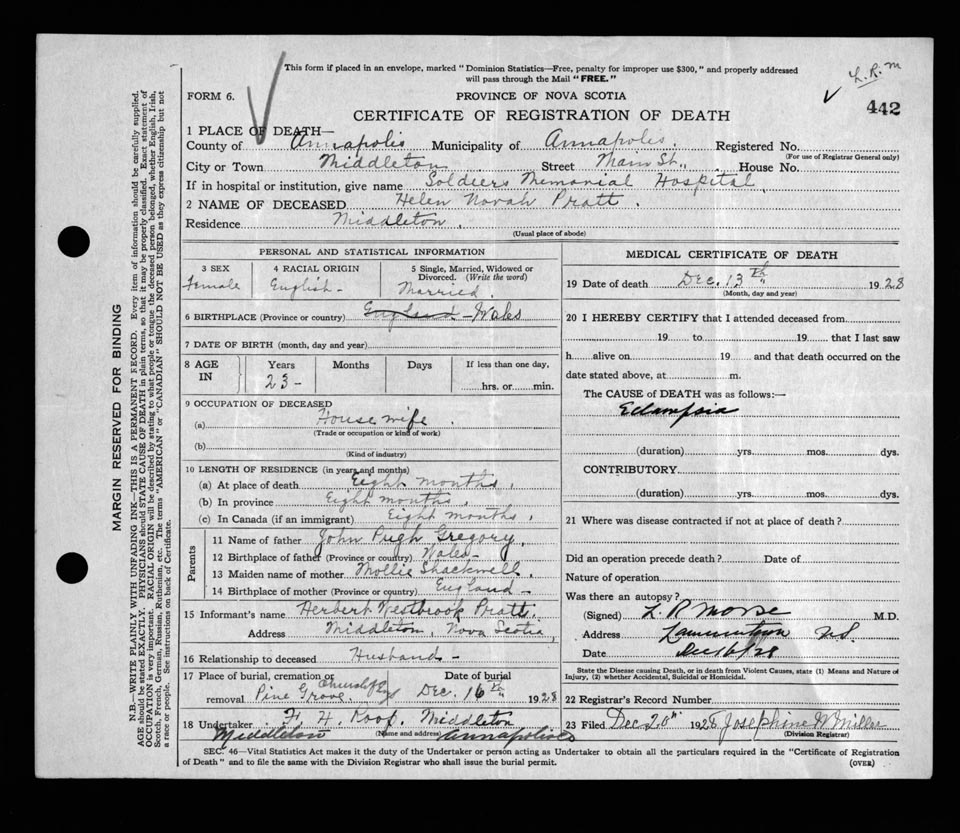 This form if placed in an envelope, marked "Dominion Statistics—Free, penalty for improper use $300," and properly addressed
will pass through the Mail "FREE."
L.R.M
FORM 6.
PROVINCE OF NOVA SCOTIA
442
CERTIFICATE OF REGISTRATION OF DEATH
1 PLACE OF DEATH—
County of Annapolis Municipality of Annapolis. Registered No.
(For use of Registrar General only)
City or Town Middleton Street Main St., House No.
If in hospital or institution, give name Soldiers Memorial Hospital,
2 NAME OF DECEASED Helen Norah Pratt.
Residence Middleton.
(Usual place of abode)
PERSONAL AND STATISTICAL INFORMATION
3 SEX 4 RACIAL ORIGIN 5 Single, Married, Widowed or
Divorced. (Write the word)
Female English- Married.
6 BIRTHPLACE (Province or country) England - Wales
7 DATE OF BIRTH (month, day and year)
8 AGE IN Years Months Days If less than one day,
23- hrs. or min.
9 OCCUPATION OF DECEASED
(a) House wife.
(Trade or occupation or kind of work)
(b)
(Kind of industry)
10 LENGTH OF RESIDENCE (in years and months)
(a) At place of death Eight months,
(b) In province Eight months,
(c) In Canada (if an immigrant) Eight months,
Parents
11 Name of father John Pugh Gregory,
12 Birthplace of father (Province or country) Wales-
13 Maiden name of mother Mollie Shackwell,
14 Birthplace of mother (Province or country) England-
15 Informant's name Herbert Westbrook Pratt.
Address Middleton, Nova Scotia,
16 Relationship to deceased Husband-
17 Place of burial, cremation or Date of burial
removal Pine Grove Dec. 16th 1928
18 Undertaker F. H. Roop. Middleton
(Name and address)
Middleton Annapolis Co
MEDICAL CERTIFICATE OF DEATH
19 Date of death Dec. 13th 1928
(Month, day and year)
20 I HEREBY CERTIFY that I attended deceased from
19 to 19 that I last saw
h alive on 19 and that death occurred on the
date stated above, at m.
The CAUSE of DEATH was as follows:—
Eclampsia
(duration) yrs. mos. dys.
CONTRIBUTORY
(duration) yrs. mos. dys.
21 Where was disease contracted if not at place of death?
Did an operation precede death? Date of
Nature of operation
Was there an autopsy?
(Signed) L. R. Morse M.D.
Address Lawrencetown NS
Date Dec 16/28
State the Disease causing Death, or in death from Violent Causes, state (1) Means and Nature of
Injury, (2) whether Accidental, Suicidal or Homicidal.
22 Registrar's Record Number
23 Filed Dec 20th. 1928 Josephine W Miller
(Division Registrar)
SEC. 46—Vital Statistics Act makes it the duty of the Undertaker or person acting as Undertaker to obtain all the particulars required in the "Certificate of Registration
of Death" and to file the same with the Division Registrar who shall issue the burial permit.
(OVER)
MARGIN RESERVED FOR BINDING
N.B.—WRITE PLAINLY WITH UNFADING INK—THIS IS A PERMANENT RECORD. Every item of information should be carefully supplied.
AGE should be stated EXACTLY. PHYSICIANS should STATE CAUSE OF DEATH in plain terms, so that it may be properly classified. Exact statement of
OCCUPATION is very important. RACIAL ORIGIN will be described by stating to what people or tongue the deceased person belonged, whether English, Irish,
Scotch, French, German, Russian, Ruthenian, etc. The terms "AMERICAN" or "CANADIAN" SHOULD NOT BE USED as they express citizenship but not
a race or people. See instructions on back of Certificate.